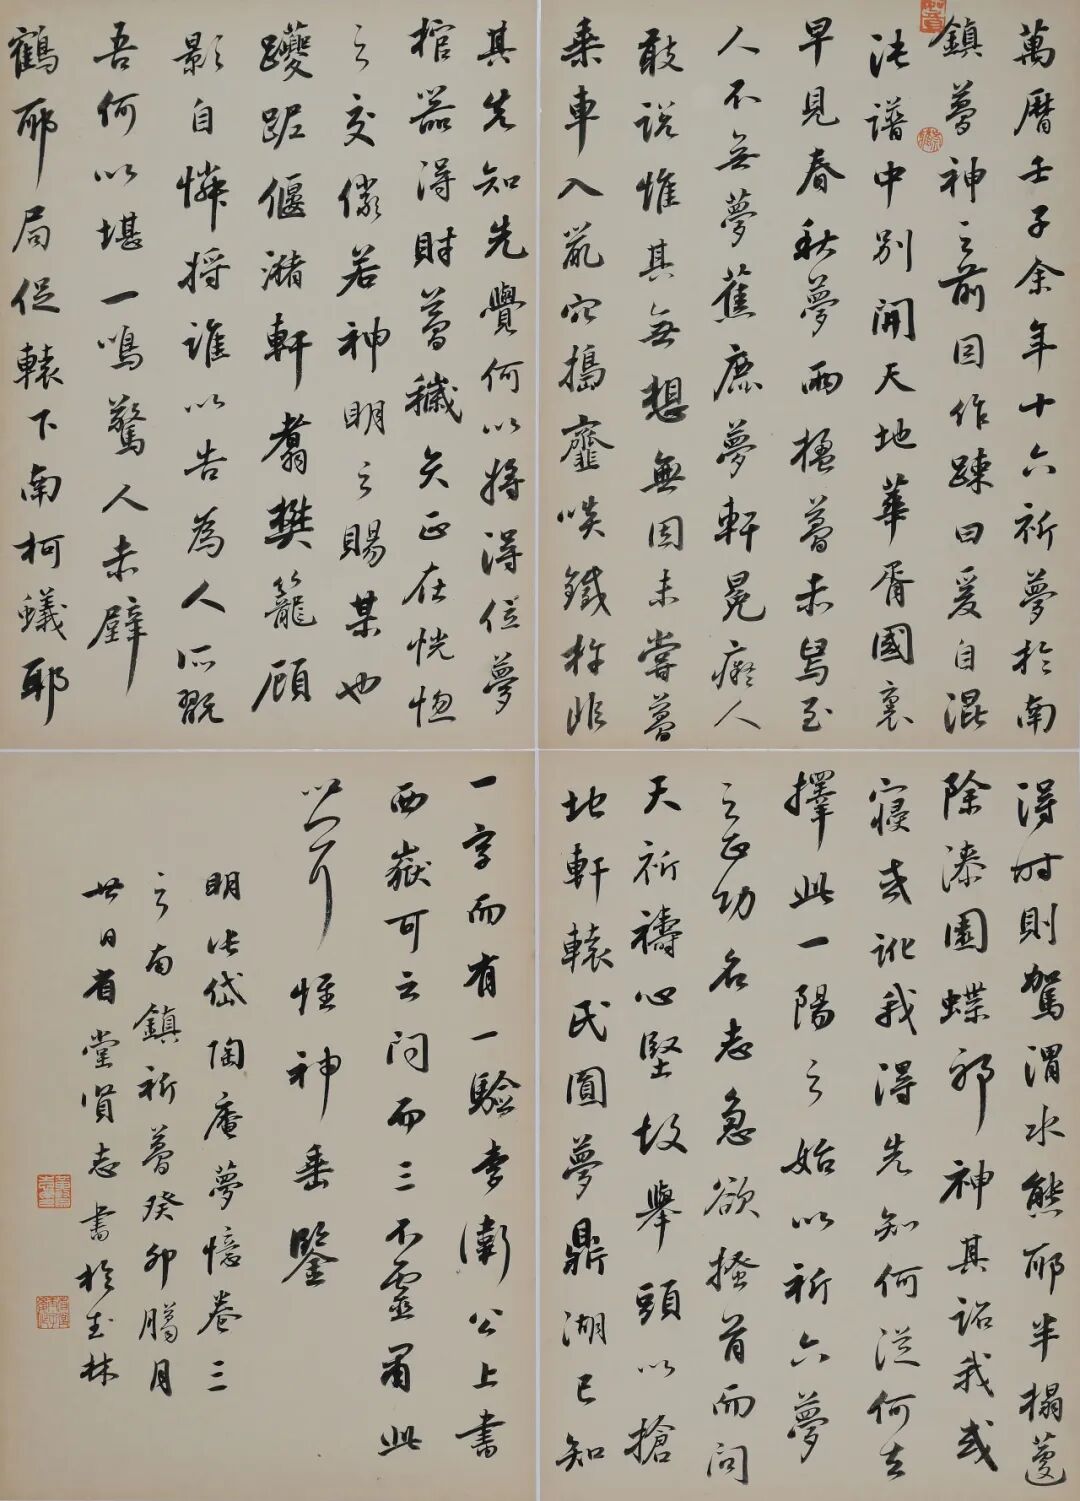 萬曆壬子余年十六祈夢於南
鎮夢神之前因作疏曰爰自混
沌譜中別開天地華胥國裏
早見春秋夢兩楹夢赤舄至
人不無夢蕉鹿夢軒冕癡人
敢說惟其無想無因未嘗夢
乘車入鼠穴搗齏啖鐵杵非
其先知先覺何以將得位夢
棺器得財夢穢矢正在恍惚
之交儼若神明之賜某也
躨跜偃瀦軒翥樊籠顧
影自憐將誰以告為人所翫
吾何以堪一鳴驚人赤壁
鶴耶局促轅下南柯蟻耶
得時則駕渭水熊耶半榻蘧
除漆園蝶耶神其詔我或
寢或訛我得先知何從何去
擇此一陽之始以祈六夢
之正功名志急欲搔首而問
天祈禱心堅故舉頭以搶
地軒轅氏圓夢鼎湖已知
一字而有一驗李衛公上書
西嶽可云問而三不靈肅此
以聞惟神垂鑒
明張岱陶庵夢憶卷三
之南鎮祈夢癸卯臘月
廿日省堂賢志書於玉林